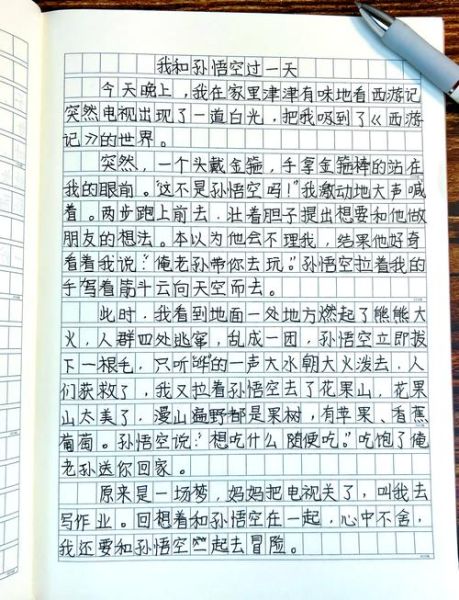 我和孙悟空过一天
今天晚上,我在家里津津有味地看西游记
突然电视出现了一道白光,把我吸到了《西游
记》的世界。
突然,一个头戴金箍,手拿金箍棒的站在
我的眼前。“这不是孙悟空吗!”我激动地大声喊
着。两步跑上前去,壮着胆子提出想要和他做
朋友的想法。本以为他会不理我,结果他好奇
看着我说:“俺老孙带你去玩。”孙悟空拉着我的
手写着筋斗云向天空而去。
此时,我看到地面一处地方燃起了熊熊大
火,人群四处逃窜,乱成一团,孙悟空立即拔
下一根毛,只听哗的一声大水朝大火泼去,人
们获救了,我又拉着孙悟空去了花果山,花果
山太美了,漫山遍野都是果树,有苹果、香蕉
葡萄。孙悟空说:“想吃什么随便吃。”吃饱了俺
老孙送你回家。
原来是一场梦,妈妈把电视关了,叫我去
写作业。回想着和孙悟空在一起,心中不舍,
我还要和孙悟空一起去冒险。